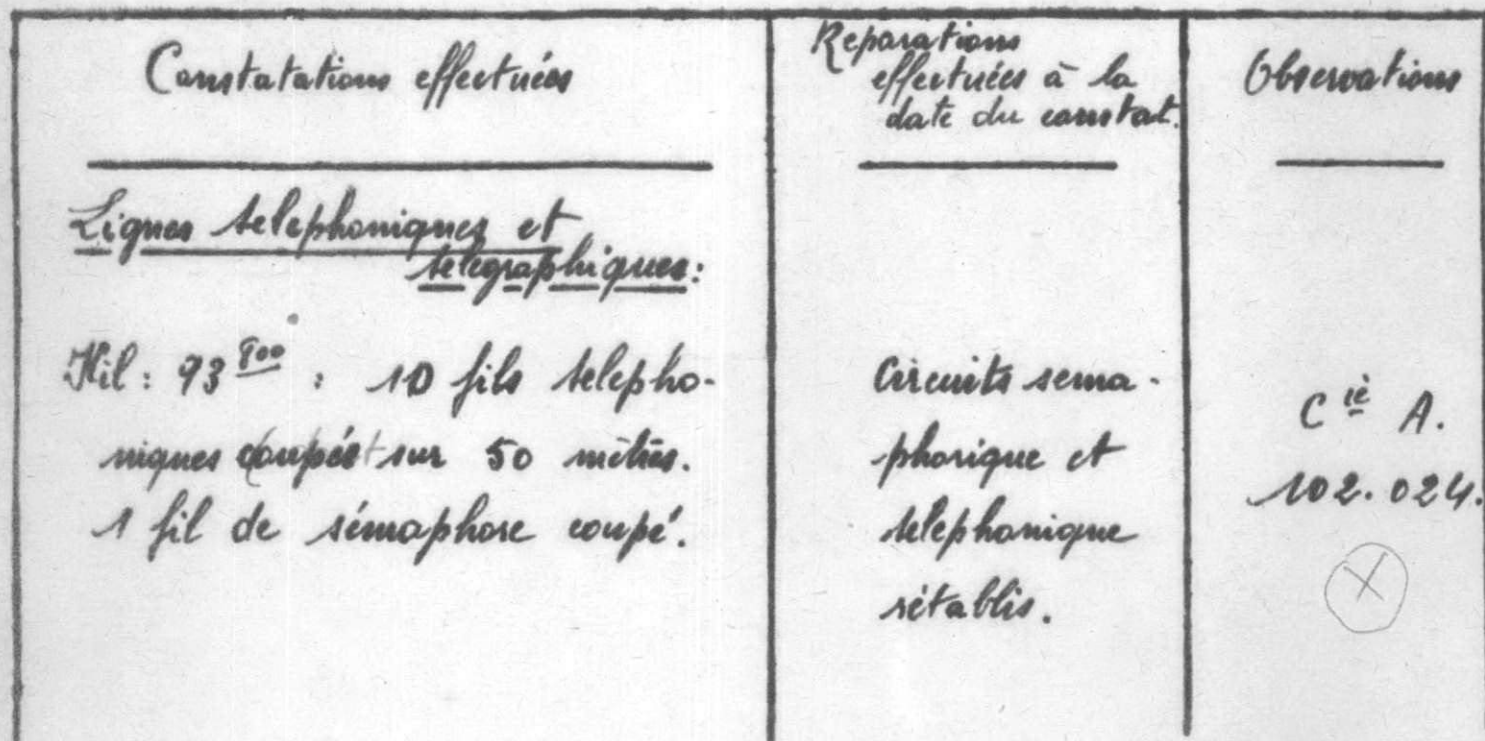 Constatations effectuées
Reparations
effectuées à la
date du constat.
Observations
Lignes telephoniques et
telegraphiques:
Kil: 93 800 : 10 fils telepho-
niques coupés sur 50 mètres.
1 fil de sémaphore coupé.
Circuits sema-
phorique et
telephonique
rétablis.
C ie A.
102.024.
X